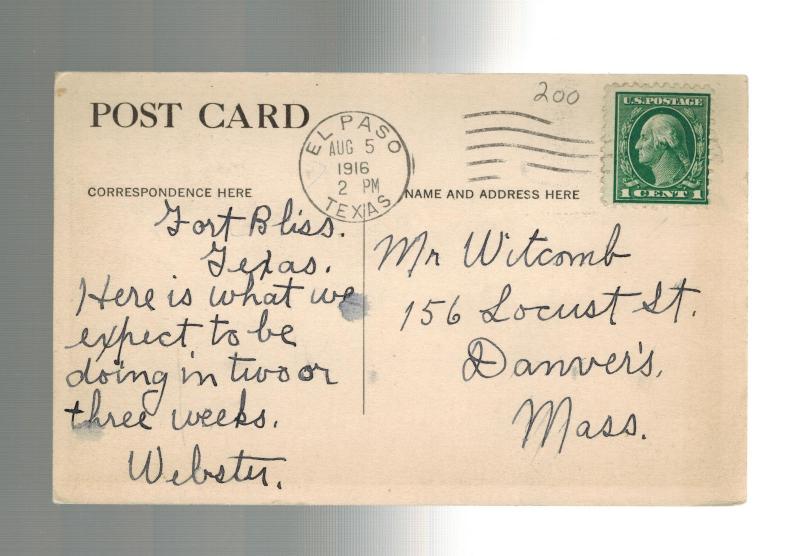 200
U.S. POSTAGE
1 CENT 1
POST CARD
EL PASO
AUG 5
1916
2 PM
TEXAS
CORRESPONDENCE HERE
NAME AND ADDRESS HERE
Fort Bliss.
Texas.
Here is what we
expect to be
doing in two or
three weeks.
Webster.
Mr Witcomb
156 Locust St.
Danver's,
Mass.